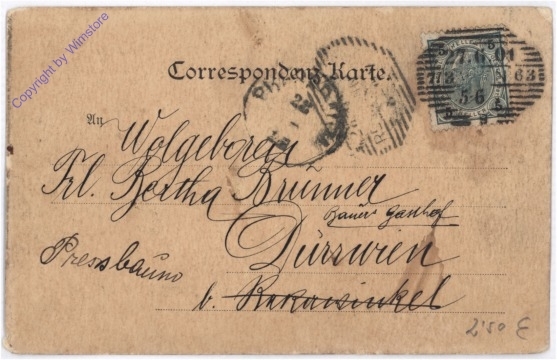 Copyright by Wimstore
Correspondenz-Karte.
27.6.01
5-6
An
Wolgeboren
Frl. Bertha Brunner
Bauer Gasthof
Dürrwien
Pressbaum
b. Rekawinkel
2'50 €